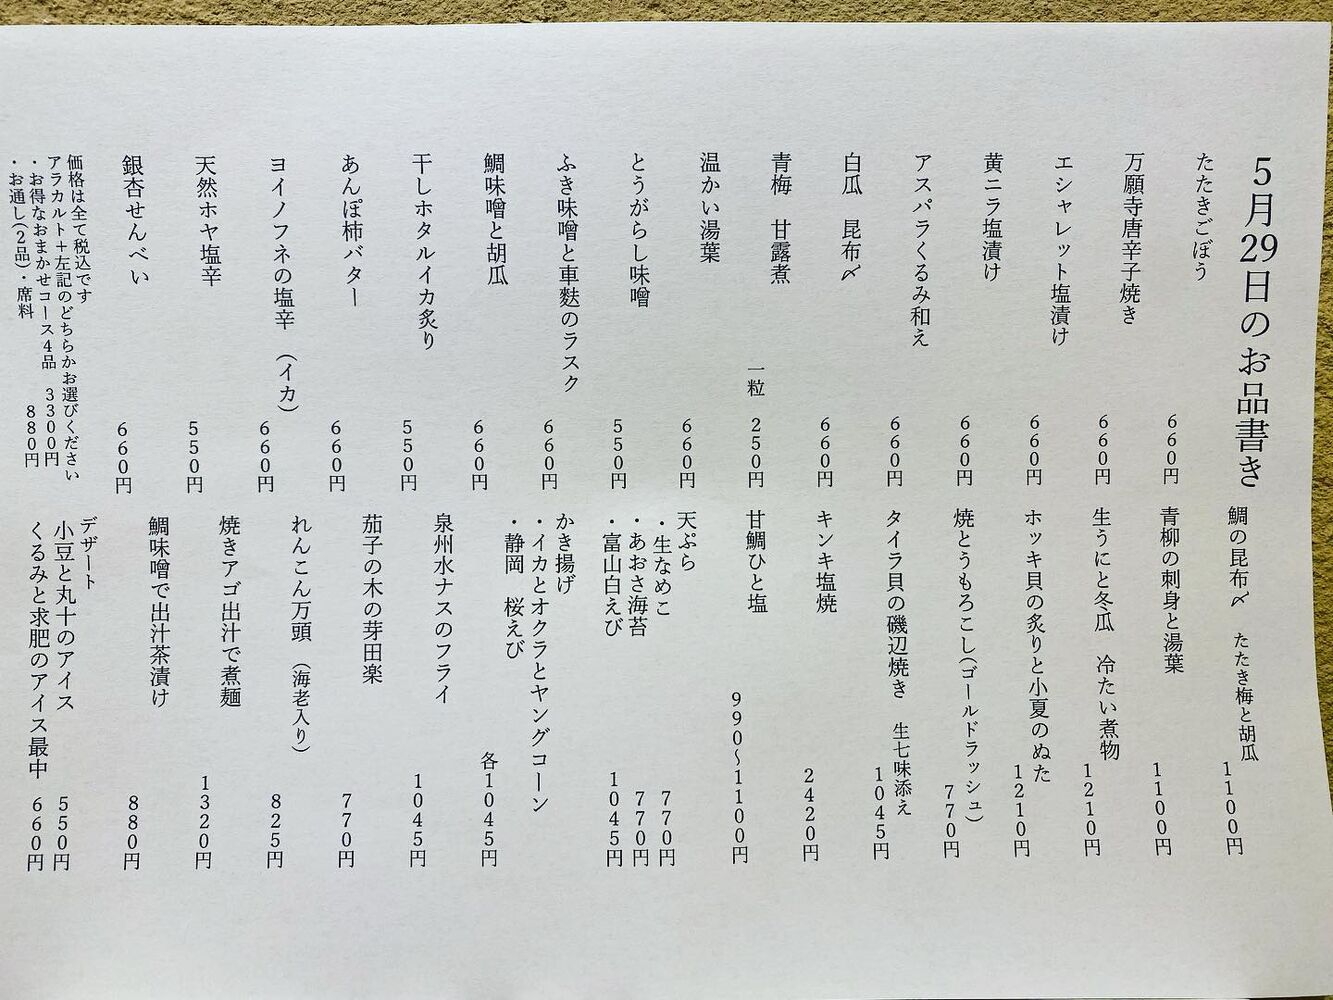 5月29日のお品書き
たたきごぼう 660円
万願寺唐辛子焼き 660円
エシャレット塩漬け 660円
黄ニラ塩漬け 660円
アスパラくるみ和え 660円
白瓜 昆布〆 660円
青梅 甘露煮 一粒 250円
温かい湯葉 660円
とうがらし味噌 550円
ふき味噌と車麩のラスク 660円
鯛味噌と胡瓜 660円
干しホタルイカ炙り 550円
あんぽ柿バター 660円
ヨイノフネの塩辛 (イカ) 660円
天然ホヤ塩辛 550円
銀杏せんべい 660円
価格は全て税込です
アラカルト+左記のどちらかお選びください
・お得なおまかせコース4品 3300円
・お通し(2品)・席料 880円
鯛の昆布〆 たたき梅と胡瓜 1100円
青柳の刺身と湯葉 1100円
生うにと冬瓜 冷たい煮物 1210円
ホッキ貝の炙りと小夏のぬた 1210円
焼とうもろこし(ゴールドラッシュ) 770円
タイラ貝の磯辺焼き 生七味添え 1045円
キンキ塩焼 2420円
甘鯛ひと塩 990〜1100円
天ぷら
・生なめこ 770円
・あおさ海苔 770円
・富山白えび 1045円
かき揚げ
・イカとオクラとヤングコーン
・静岡 桜えび 各1045円
泉州水ナスのフライ 1045円
茄子の木の芽田楽 770円
れんこん万頭 (海老入り) 825円
焼きアゴ出汁で煮麺 1320円
鯛味噌で出汁茶漬け 880円
デザート
小豆と丸十のアイス 550円
くるみと求肥のアイス最中 660円